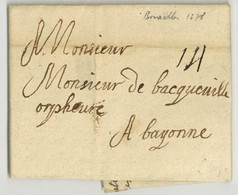 Bruxelles 1698
A Monsieur
Monsieur de bacqueville
orpheure
A bayonne